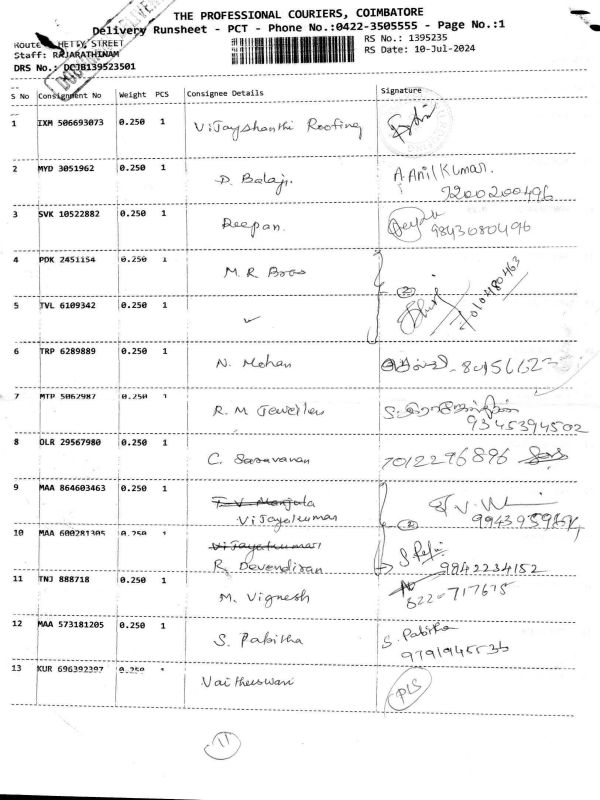 THE PROFESSIONAL COURIERS, COIMBATORE
Delivery Runsheet - PCT - Phone No.:0422-3505555 - Page No.:1
HETTY STREET
RS No.: 1395235
Staff: RAJARATHINAM
RS Date: 10-Jul-2024
DRS No.: DCJB139523501
S No Consignment No Weight PCS Consignee Details Signature
1 IXM 506693073 0.250 1 Vijayshanthi Roofing
2 MYD 3051962 0.250 1 D. Balaji. A. Anil Kumar.
7200200496
3 SVK 10522882 0.250 1 Deepan. 9843080496
4 PDK 2451154 0.250 1 M. R Bros
5 TVL 6109342 0.250 1 ✓
6 TRP 6289889 0.250 1 N. Mohan
7 MTP 5062987 0.250 1 R. M Jewellers
9345394502
8 DLR 29567980 0.250 1 C. Saravanan 7012296896
9 MAA 864603463 0.250 1 T V Manjula
Vijayakumar
10 MAA 600281305 0.250 1 Vijayakumar
R. Devendiran 9842234152
11 TNJ 888718 0.250 1 M. Vignesh
12 MAA 573181205 0.250 1 S. Pabitha S. Pabitha
13 KUR 696392397 0.250 Vaitheeswari PLS
11